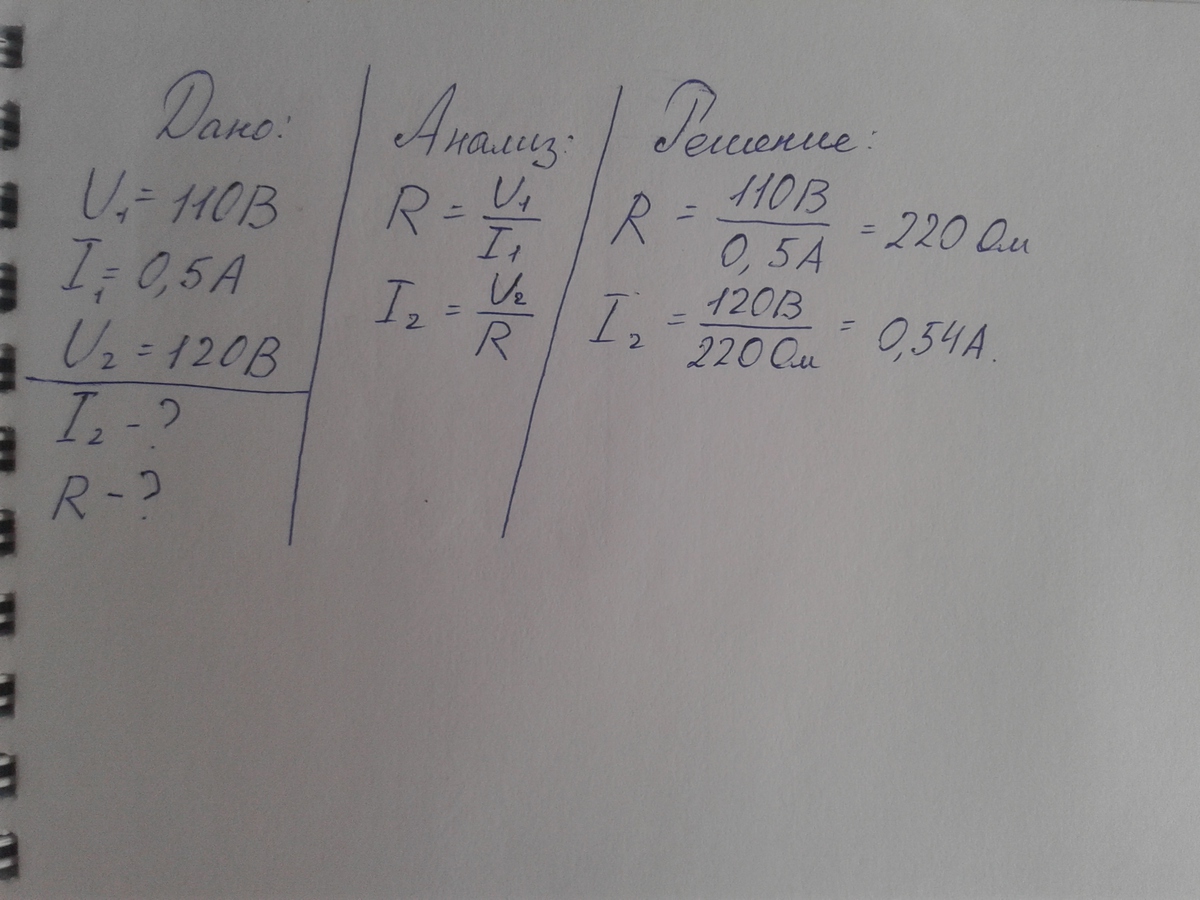 Дано:
U₁ = 110В
I₁ = 0,5А
U₂ = 120В
I₂ - ?
R - ?
Анализ:
R = U₁/I₁
I₂ = U₂/R
Решение:
R = 110В/0,5А = 220 Ом
I₂ = 120В/220 Ом = 0,54А.